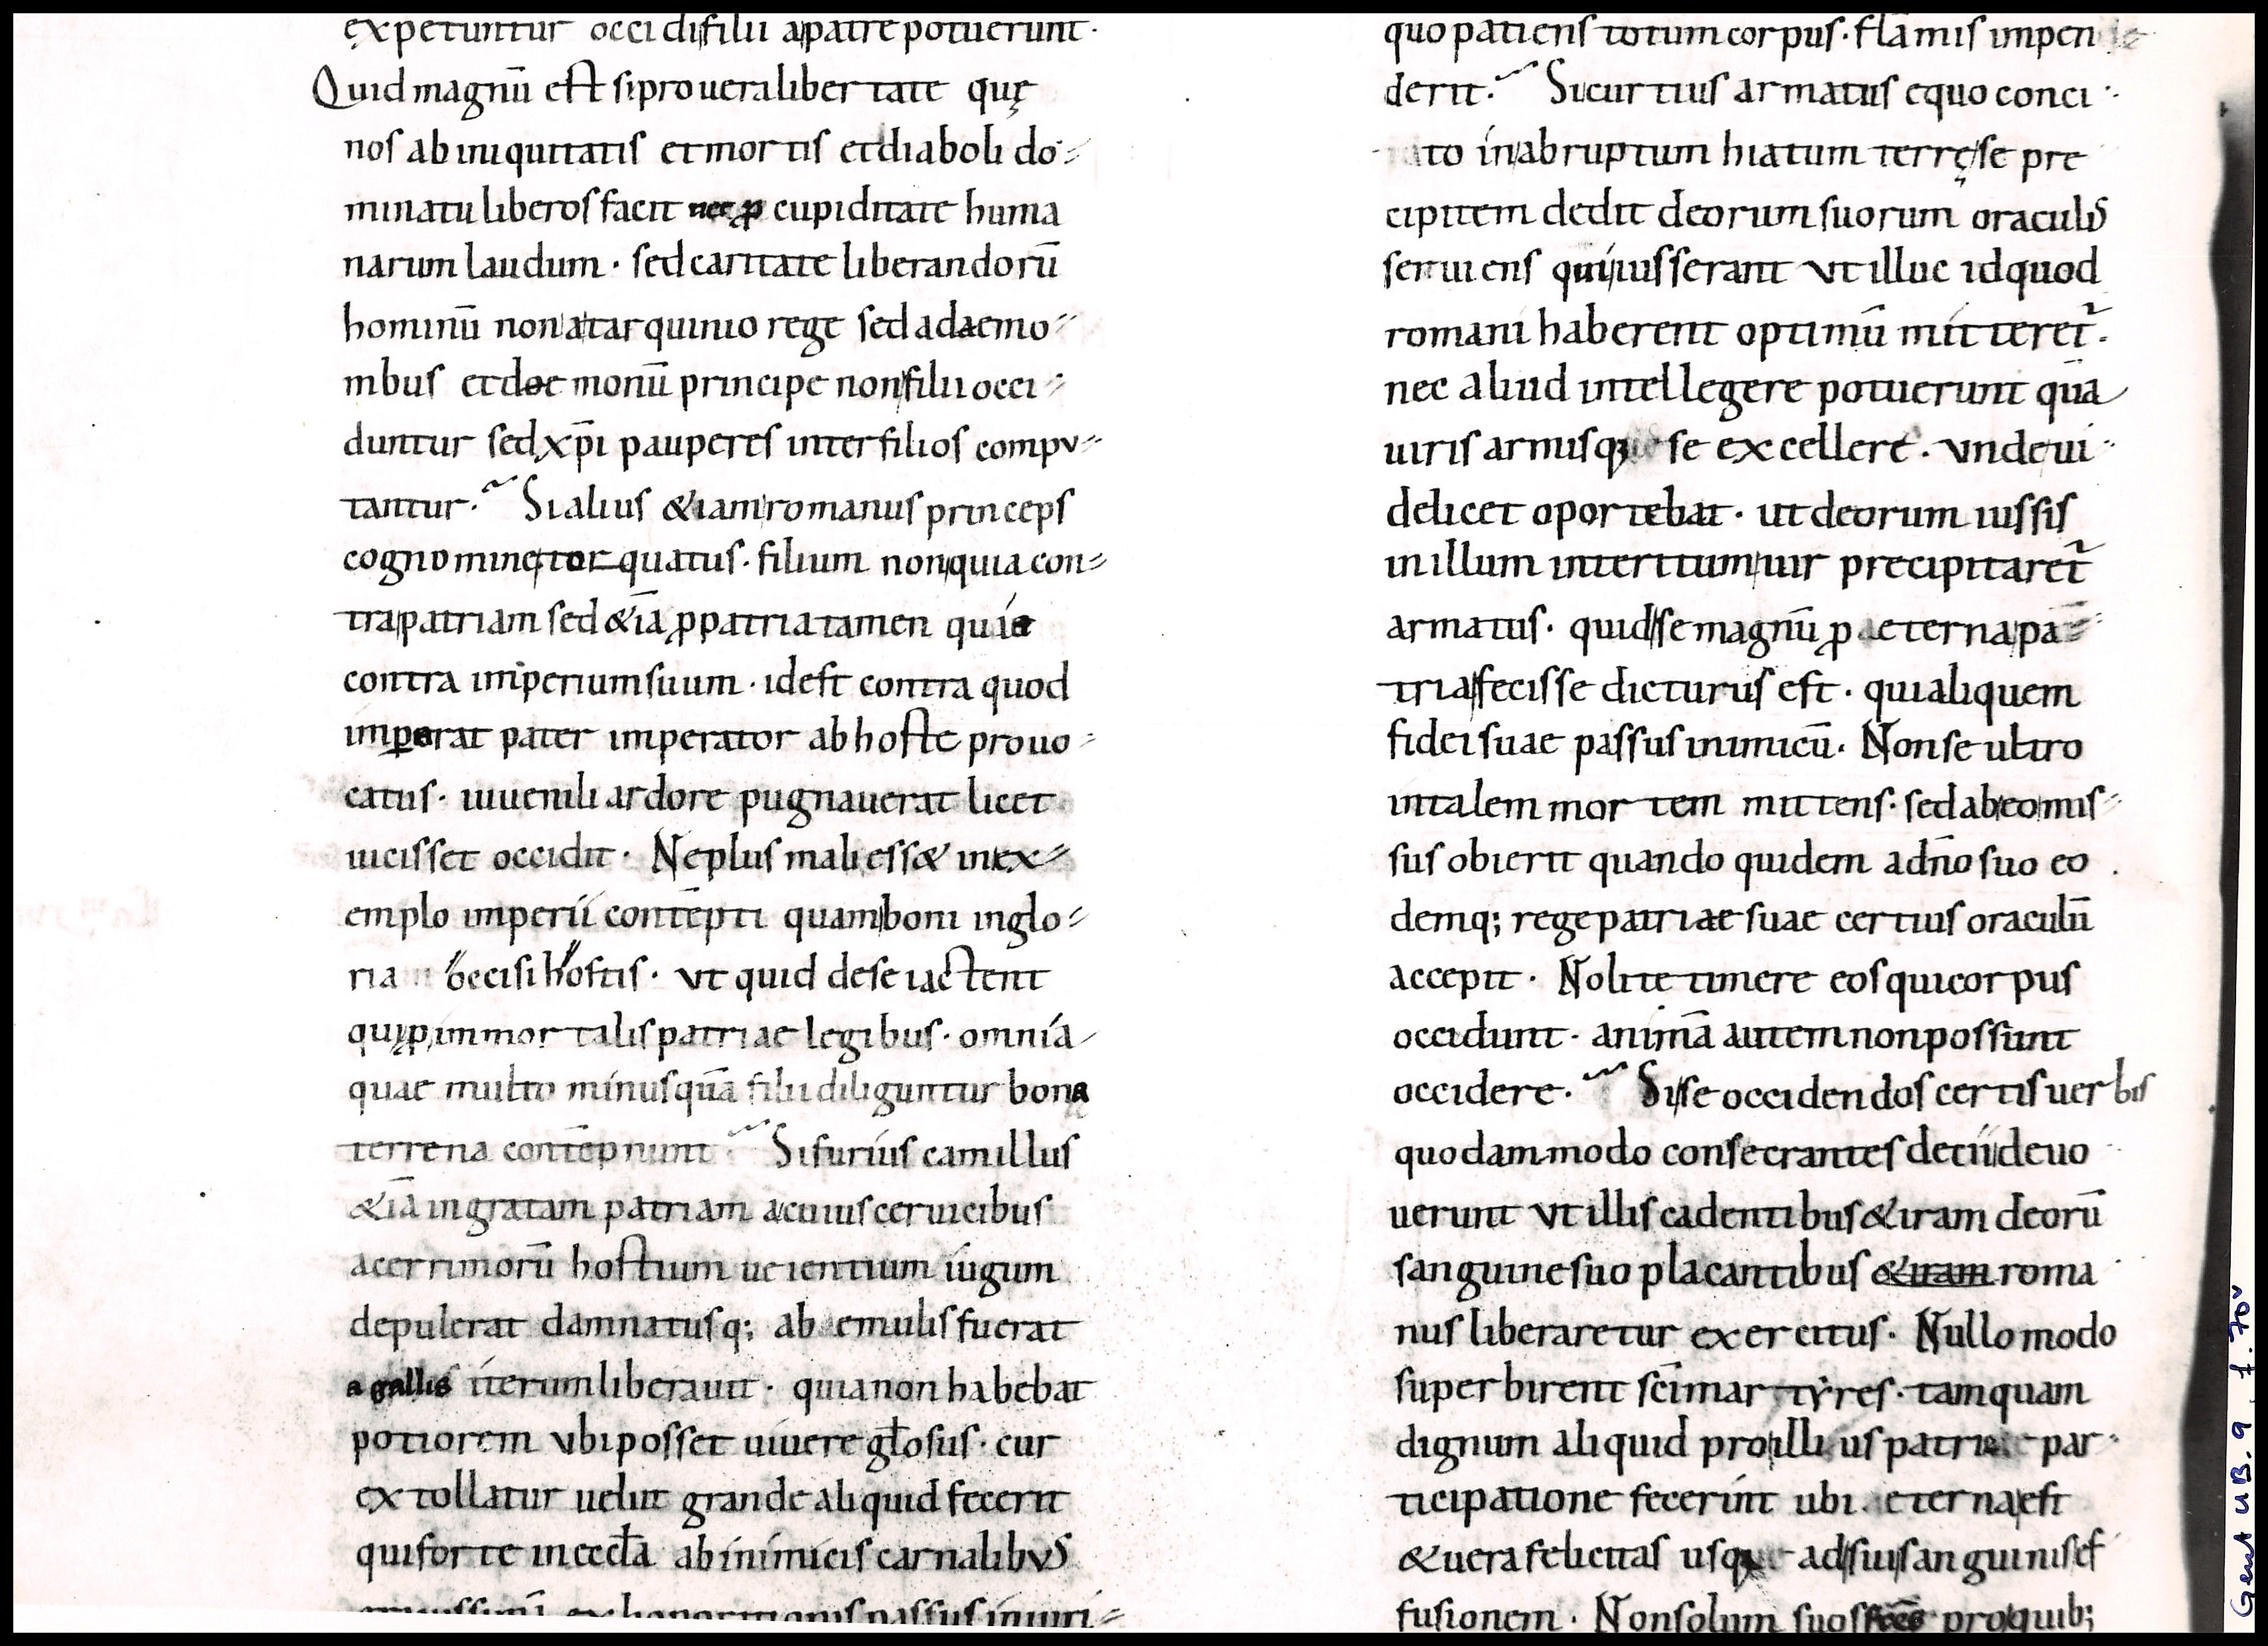 expetuntur occidi filii a patre potuerunt·
Quid magnū est si pro uera libertate quę
nos ab iniquitatis et mortis et diaboli do-
minatu liberos facit nec ꝓ cupiditate huma
narum laudum· sed caritate liberandorū
hominū non a tarquinio rege sed a daemo-
nibus et doemonū principe non filii occi-
duntur sed xp̄i pauperes inter filios compu-
tantur· Si alius &iam romanus princeps
cognomine torquatus· filium non quia con-
tra patriam sed &iā ꝓ patria tamen quia
contra imperium suum· id est contra quod
imperat pater imperator ab hoste prouo-
catus· iuuenili ardore pugnauerat licet
uicisset occidit· Ne plus mali ess& in ex-
emplo imperii contēpti quam boni in glo-
ria occisi hostis· ut quid de se iactent
qui ꝓ immortalis patriae legibus· omnia
quae multo minus quā filii diliguntur bona
terrena contēpnunt Si furius camillus
&iā ingratam patriam a cuius ceruicibus
acerrimorū hostium ueientium iugum
depulerat damnatusq; ab emulis fuerat
a gallis iterum liberauit· quia non habebat
potiorem ubi posset uiuere gl̄osus· cur
extollatur uelut grande aliquid fecerit
qui forte in eccl̄a ab inimicis carnalibus
grauissimā exhonorationis passus iniuri-
quo patiens totum corpus· flāmis impen
derit· Si curtius armatus equo conci-
to in abruptum hiatum terrę se pre
cipitem dedit deorum suorum oraculis
seruiens qui iusserant ut illuc id quod
romani haberent optimū mitteret̄·
nec aliud intellegere potuerunt quā
uiris armisq; se excellere· unde ui-
delicet oportebat· ut deorum iussis
in illum interitum uir precipitaret̄
armatus· quid se magnū ꝓ aeterna pa-
tria fecisse dicturus est· qui aliquem
fidei suae passus inimicū· Non se ultro
in talem mortem mittens· sed ab eo mis-
sus obierit quando quidem a dn̄o suo eo
demq; rege patriae suae certius oraculū
accepit· Nolite timere eos qui corpus
occidunt· animā autem non possunt
occidere· Si se occidendos certis uerbis
quodammodo consecrantes decii deuo
uerunt ut illis cadentibus & iram deorū
sanguine suo placantibus & iram roma
nus liberaretur exercitus· Nullo modo
superbirent sc̄i martyres· tamquam
dignum aliquid pro illius patriae par-
ticipatione fecerint ubi eterna est
& uera felicitas usque ad sui sanguinis ef
fusionem· Non solum suos pro quib;
Gent UB. 9 f. 70v